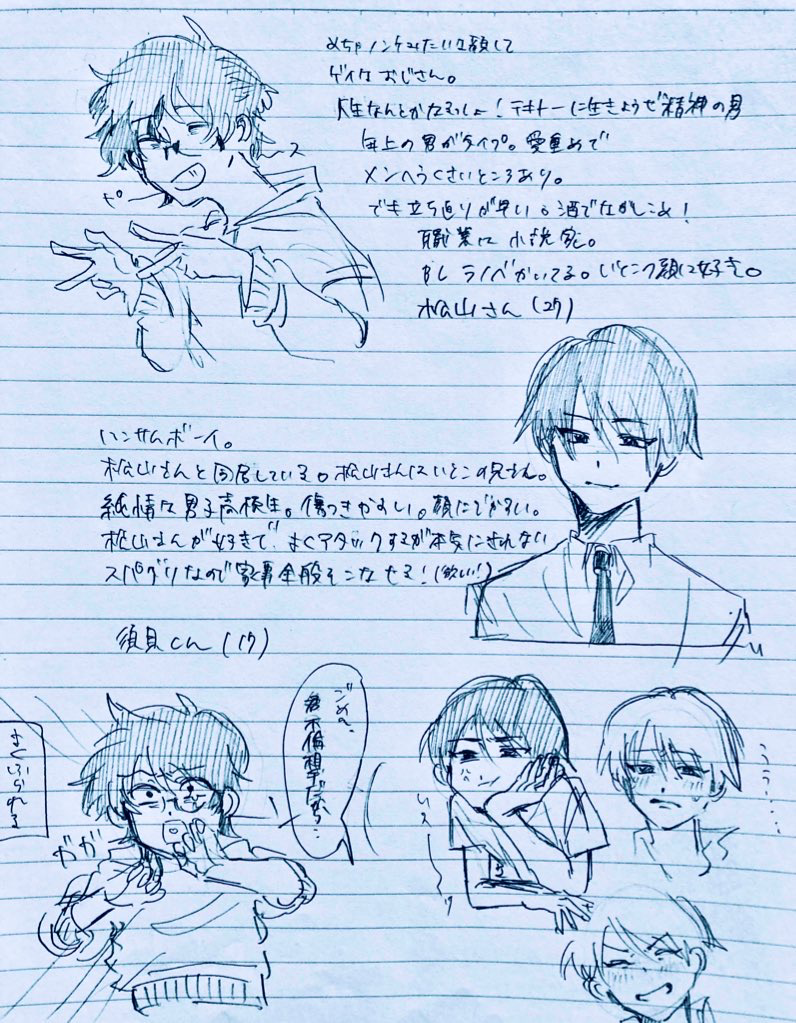 めちゃノンケみたいな顔して
ゲイなおじさん。
人生なんとかなるっしょ！テキトーに生きようぜ精神の男
年上の男がタイプ。愛重めで
メンヘラくさいところあり。
でも立ち直りが早い。酒でながしこめ！
職業は小説家。
BLラノベかいてる。いとこの顔は好き。
松山さん（27）
ハンサムボーイ。
松山さんと同居している。松山さんはいとこの兄さん。
純情な男子高校生。傷つきやすい。顔にでやすい。
松山さんが好きで よくアタックするが本気にされない
スパダリなので家事全般そこなせる！（欲しい！）
須貝くん（17）
よくふられる
ガガ
ごめん、
君不倫相手だから…
うう……